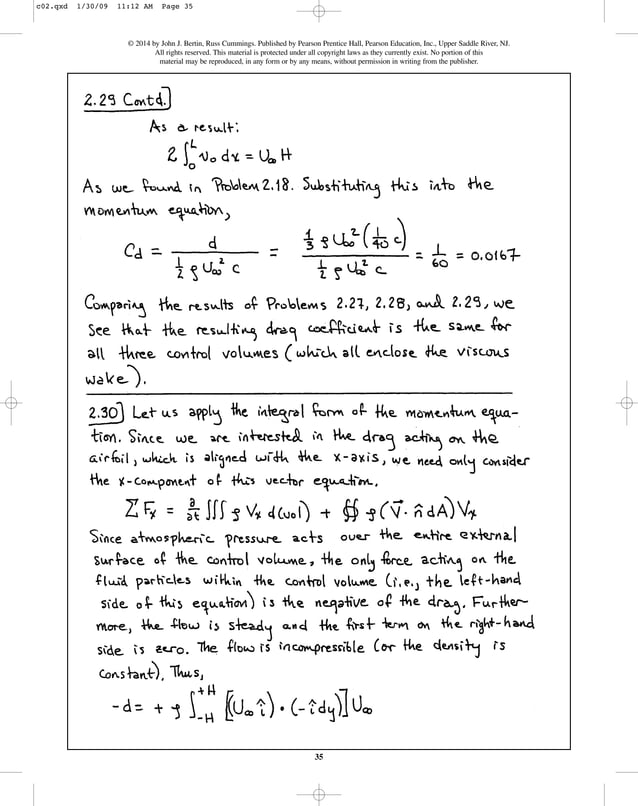 c02.qxd 1/30/09 11:12 AM Page 35
© 2014 by John J. Bertin, Russ Cummings. Published by Pearson Prentice Hall, Pearson Education, Inc., Upper Saddle River, NJ.
All rights reserved. This material is protected under all copyright laws as they currently exist. No portion of this
material may be reproduced, in any form or by any means, without permission in writing from the publisher.
2.29 Contd.]
As a result:
2 ∫₀ᴸ v₀ dx = U∞ H
As we found in Problem 2.18. Substituting this into the
momentum equation,
Cd = d / (½ ρ U∞² c) = ⅓ ρ U∞² (1/40 c) / (½ ρ U∞² c) = 1/60 = 0.0167
Comparing the results of Problems 2.27, 2.28, and 2.29, we
see that the resulting drag coefficient is the same for
all three control volumes (which all enclose the viscous
wake).
2.30] Let us apply the integral form of the momentum equa-
tion. Since we are interested in the drag acting on the
airfoil, which is aligned with the x-axis, we need only consider
the x-component of this vector equation.
ΣFx = ∂/∂t ∭ ρ Vx d(vol) + ∯ ρ(V⃗ · n̂ dA)Vx
Since atmospheric pressure acts over the entire external
surface of the control volume, the only force acting on the
fluid particles within the control volume (i.e., the left-hand
side of this equation) is the negative of the drag. Further-
more, the flow is steady and the first term on the right-hand
side is zero. The flow is incompressible (or the density is
constant). Thus,
-d = + ρ ∫₋H⁺H [(U∞ î) · (-î dy)] U∞
35